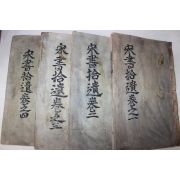 宋書拾遺卷之一
宋書拾遺卷之二
宋書拾遺卷之三
宋書拾遺卷之四